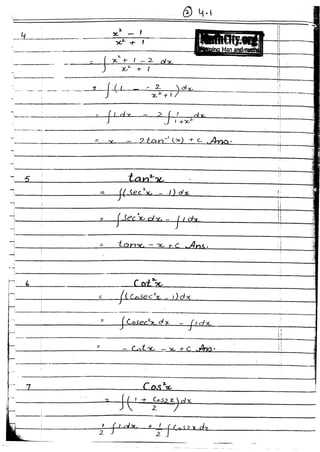 ② 4.1
4 x² - 1
x² + 1
MathCity.org
Merging Man and maths
= ∫ x² + 1 - 2 dx
x² + 1
= ∫ (1 - 2 ) dx
x² + 1
= ∫ 1 dx - 2 ∫ 1 dx
1 + x²
= x - 2 tan⁻¹(x) + c Ans.
5 tan²x
= ∫(sec²x - 1) dx
= ∫ sec²x dx - ∫ 1 dx
= tanx - x + c Ans.
6 Cot²x
= ∫(Cosec²x - 1) dx
= ∫ Cosec²x dx - ∫ 1 dx
= - Cotx - x + c Ans.
7 Cos²x
= ∫ ( 1 + Cos2x ) dx
2
1 ∫ 1 dx + 1 ∫ Cos2x dx
2 2